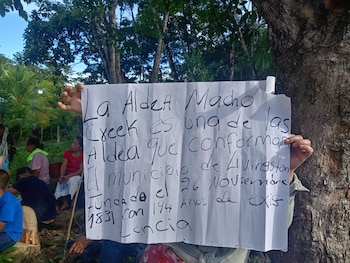 La Aldea Macho
Creek es una de las
Aldea que conforman
El municipio de Livingston
Fundado el 26 Noviembre
1831 con 194 Años de Exis
tencia